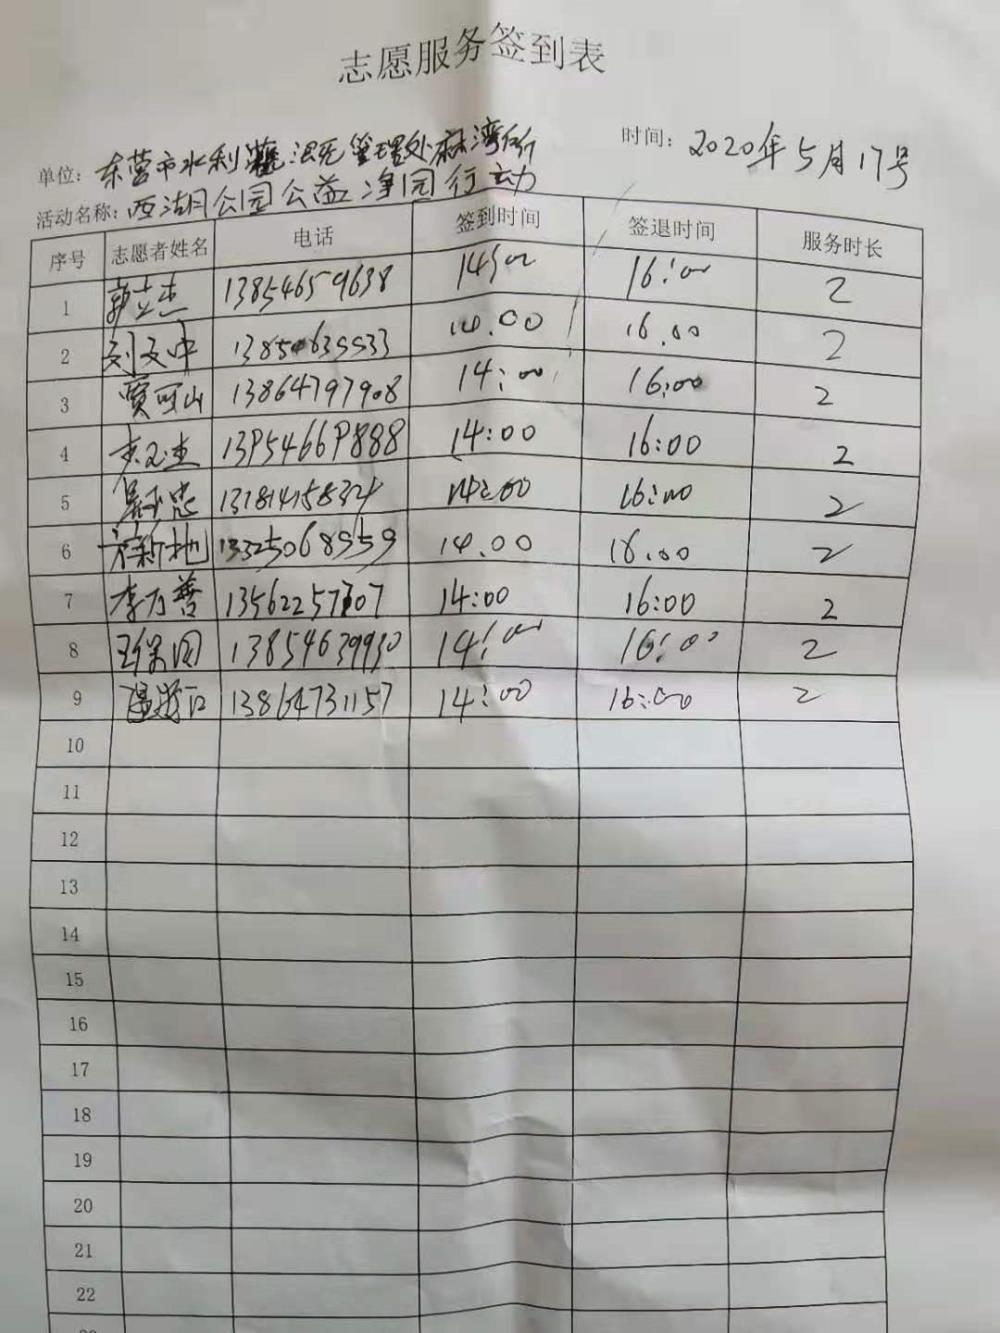 志愿服务签到表
时间: 2020年5月17号
单位: 东营市水利灌溉管理处麻湾所
活动名称: 西湖公园公益净园行动
序号 志愿者姓名 电话 签到时间 签退时间 服务时长
1 郭立杰 13854659638 14:00 16:00 2
2 刘文中 14.00 16.00 2
3 贾可山 13864797908 14:00 16:00 2
4 13954669888 14:00 16:00 2
5 14:00 16:00 2
6 14.00 16.00 2
7 李万善 14:00 16:00 2
8 13854639930 14:00 16:00 2
9 13864731157 14:00 16:00 2
10
11
12
13
14
15
16
17
18
19
20
21
22